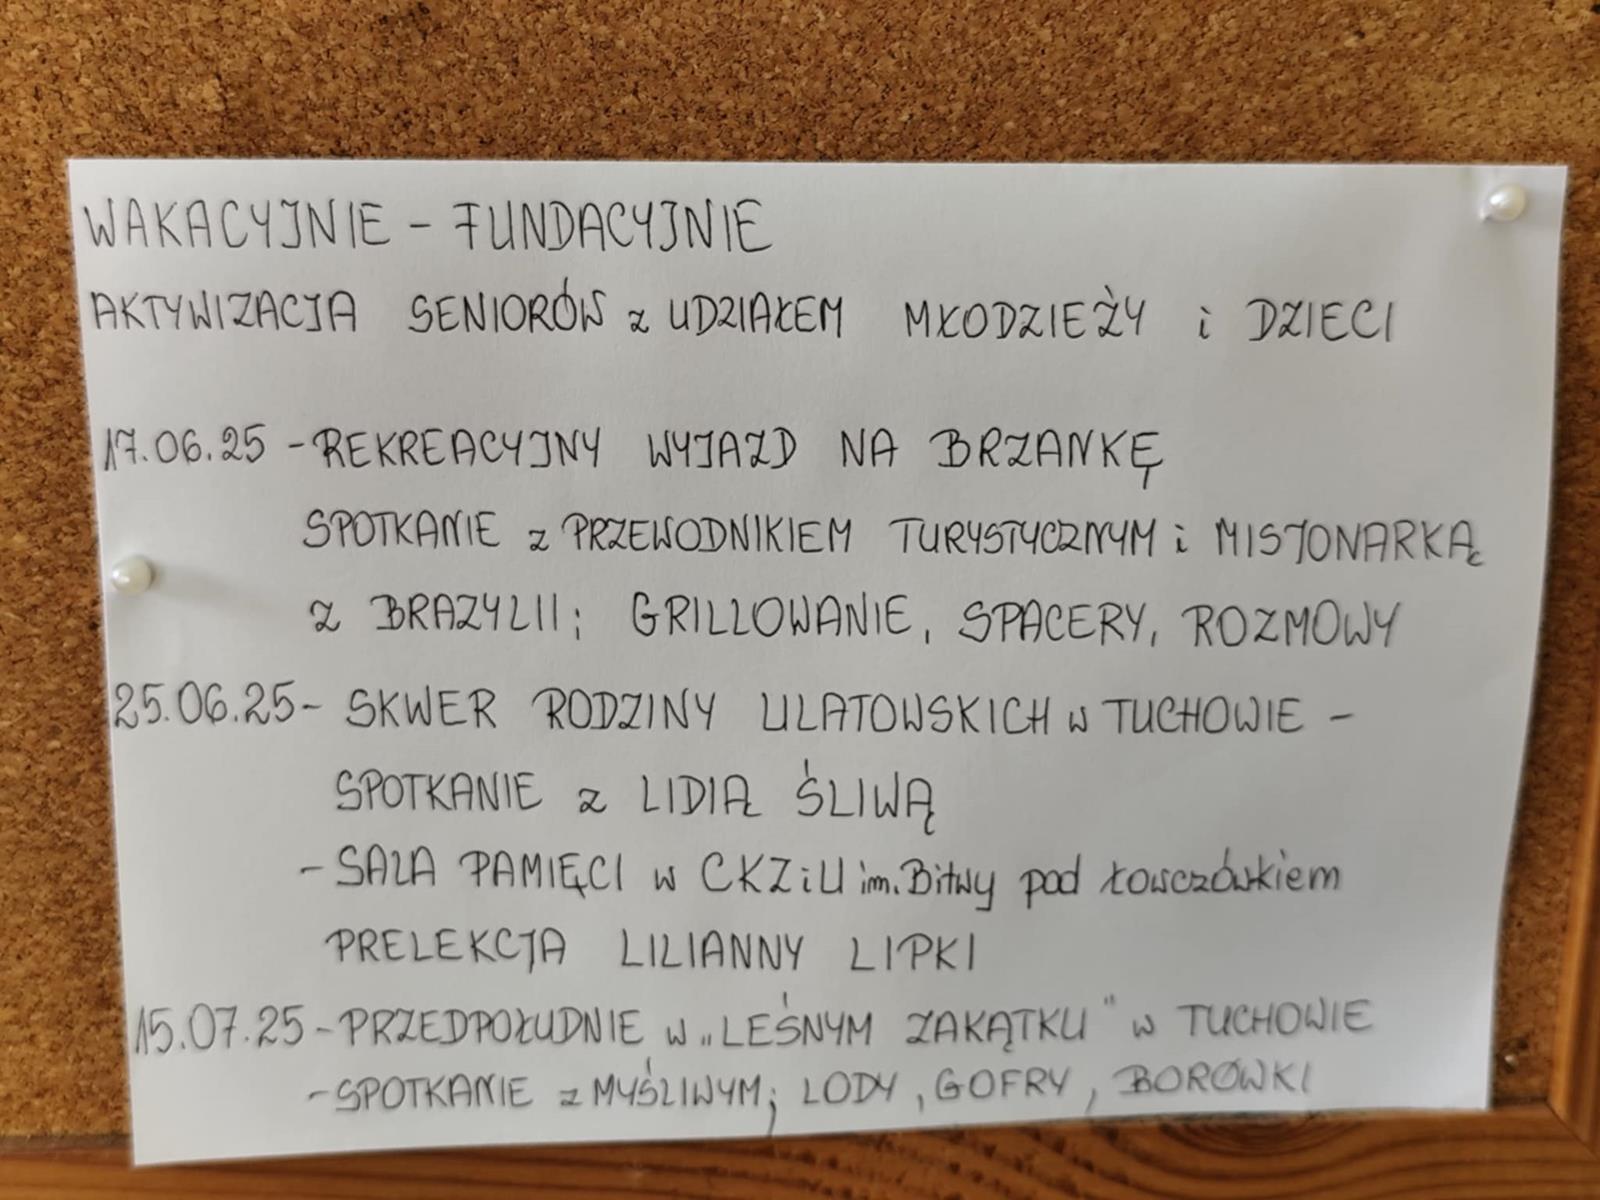 WAKACYJNIE - FUNDACYJNIE
AKTYWIZACJA SENIORÓW z UDZIAŁEM MŁODZIEŻY i DZIECI
17.06.25 - REKREACYJNY WYJAZD NA BRZANKĘ
SPOTKANIE z PRZEWODNIKIEM TURYSTYCZNYM i MISJONARKĄ
Z BRAZYLII; GRILLOWANIE, SPACERY, ROZMOWY
25.06.25 - SKWER RODZINY ULATOWSKICH w TUCHOWIE -
SPOTKANIE z LIDIĄ ŚLIWĄ
- SALA PAMIĘCI w CKZiU im. Bitwy pod Łowczówkiem
PRELEKCJA LILIANNY LIPKI
15.07.25 - PRZEDPOŁUDNIE w „LEŚNYM ZAKĄTKU" w TUCHOWIE
- SPOTKANIE z MYŚLIWYM; LODY, GOFRY, BORÓWKI